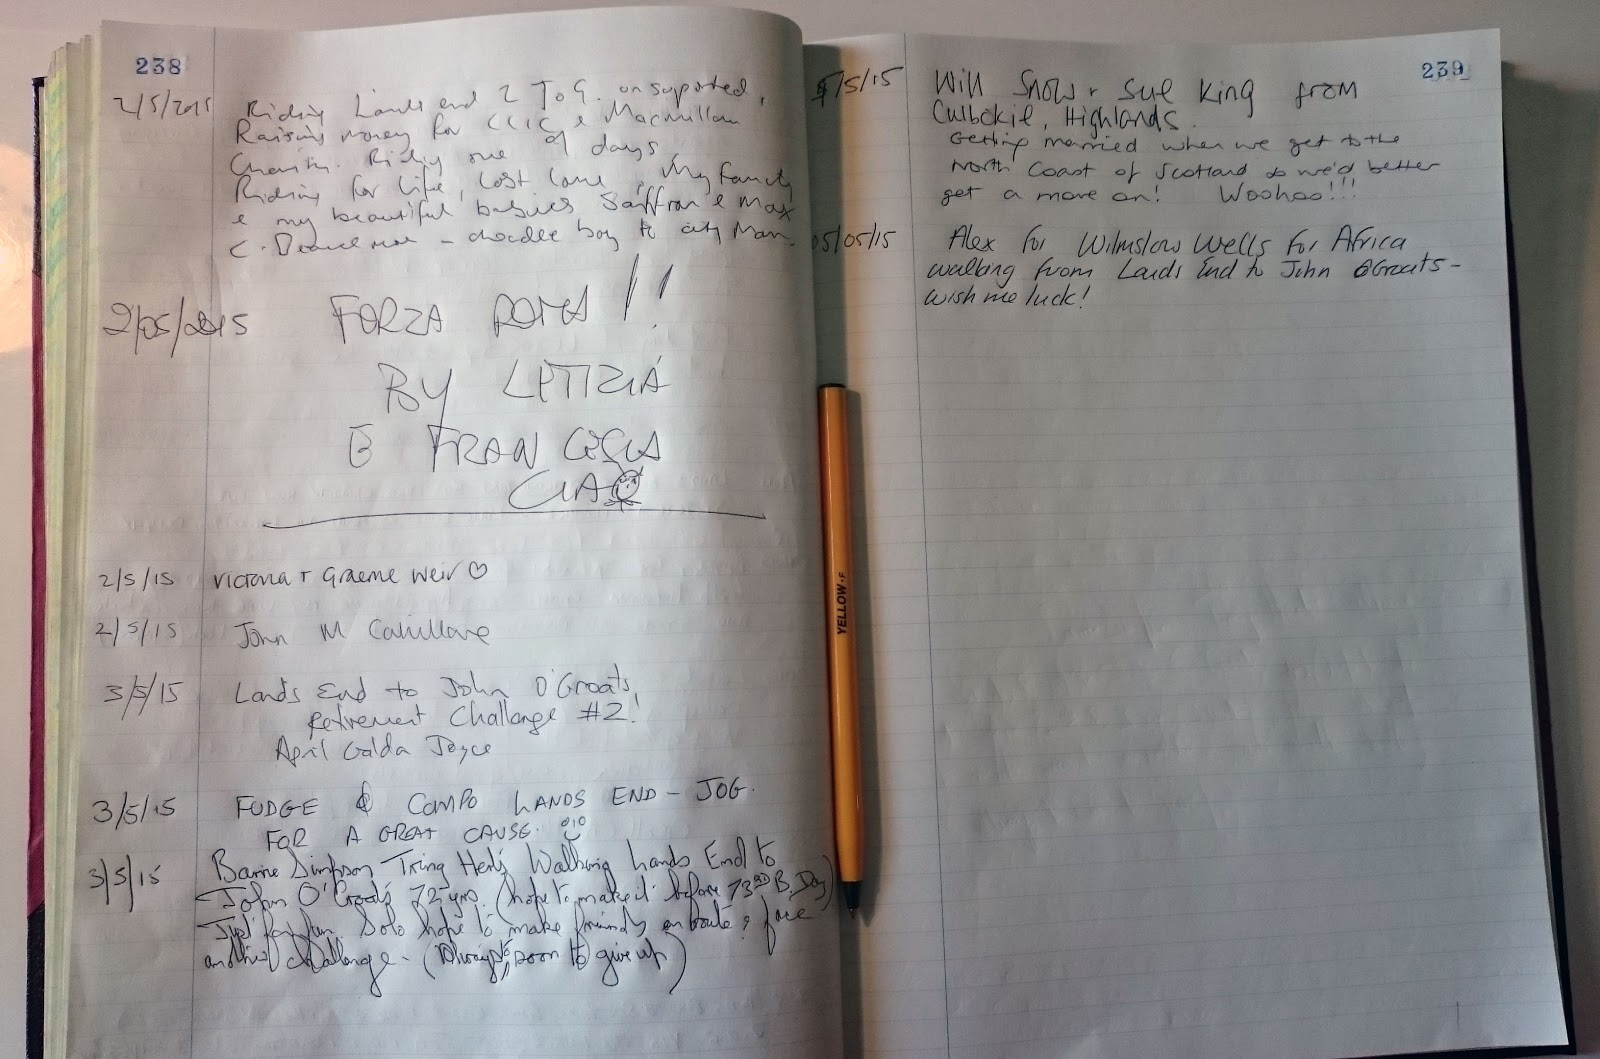 238
2/5/2015 Riding Lands end 2 JOG. unsupported,
Raising money for CLIC & Macmillan
Charity. Riding one of days
Riding for life, lost love, My Family
& my beautiful babies Saffron & Max
C. - boy to city Man.
2/05/2015 FORZA ROMA !!
BY LETIZIA
E FRANCESCA
CIAO
2/5/15 Victoria + Graeme Weir ♡
2/5/15 John M
3/5/15 Lands End to John O'Groats,
Retirement Challenge #2!
April Joyce
3/5/15 FUDGE & COMPO LANDS END - JOG.
FOR A GREAT CAUSE.
3/5/15 Barrie Simpson Tring Herts Walking Lands End to
John O'Groats 72 yrs. (hope to make it before 73RD B. Day)
Just for fun. Solo hope to make friends en route & face
another challenge - (Always too soon to give up)
239
5/5/15 Will Snow + Sue King from
Culbokie, Highlands.
Getting married when we get to the
North Coast of Scotland so we'd better
get a move on! Woohoo!!!
05/05/15 Alex for Wilmslow Wells for Africa
walking from Lands End to John O'Groats -
wish me luck!
YELLOW·F